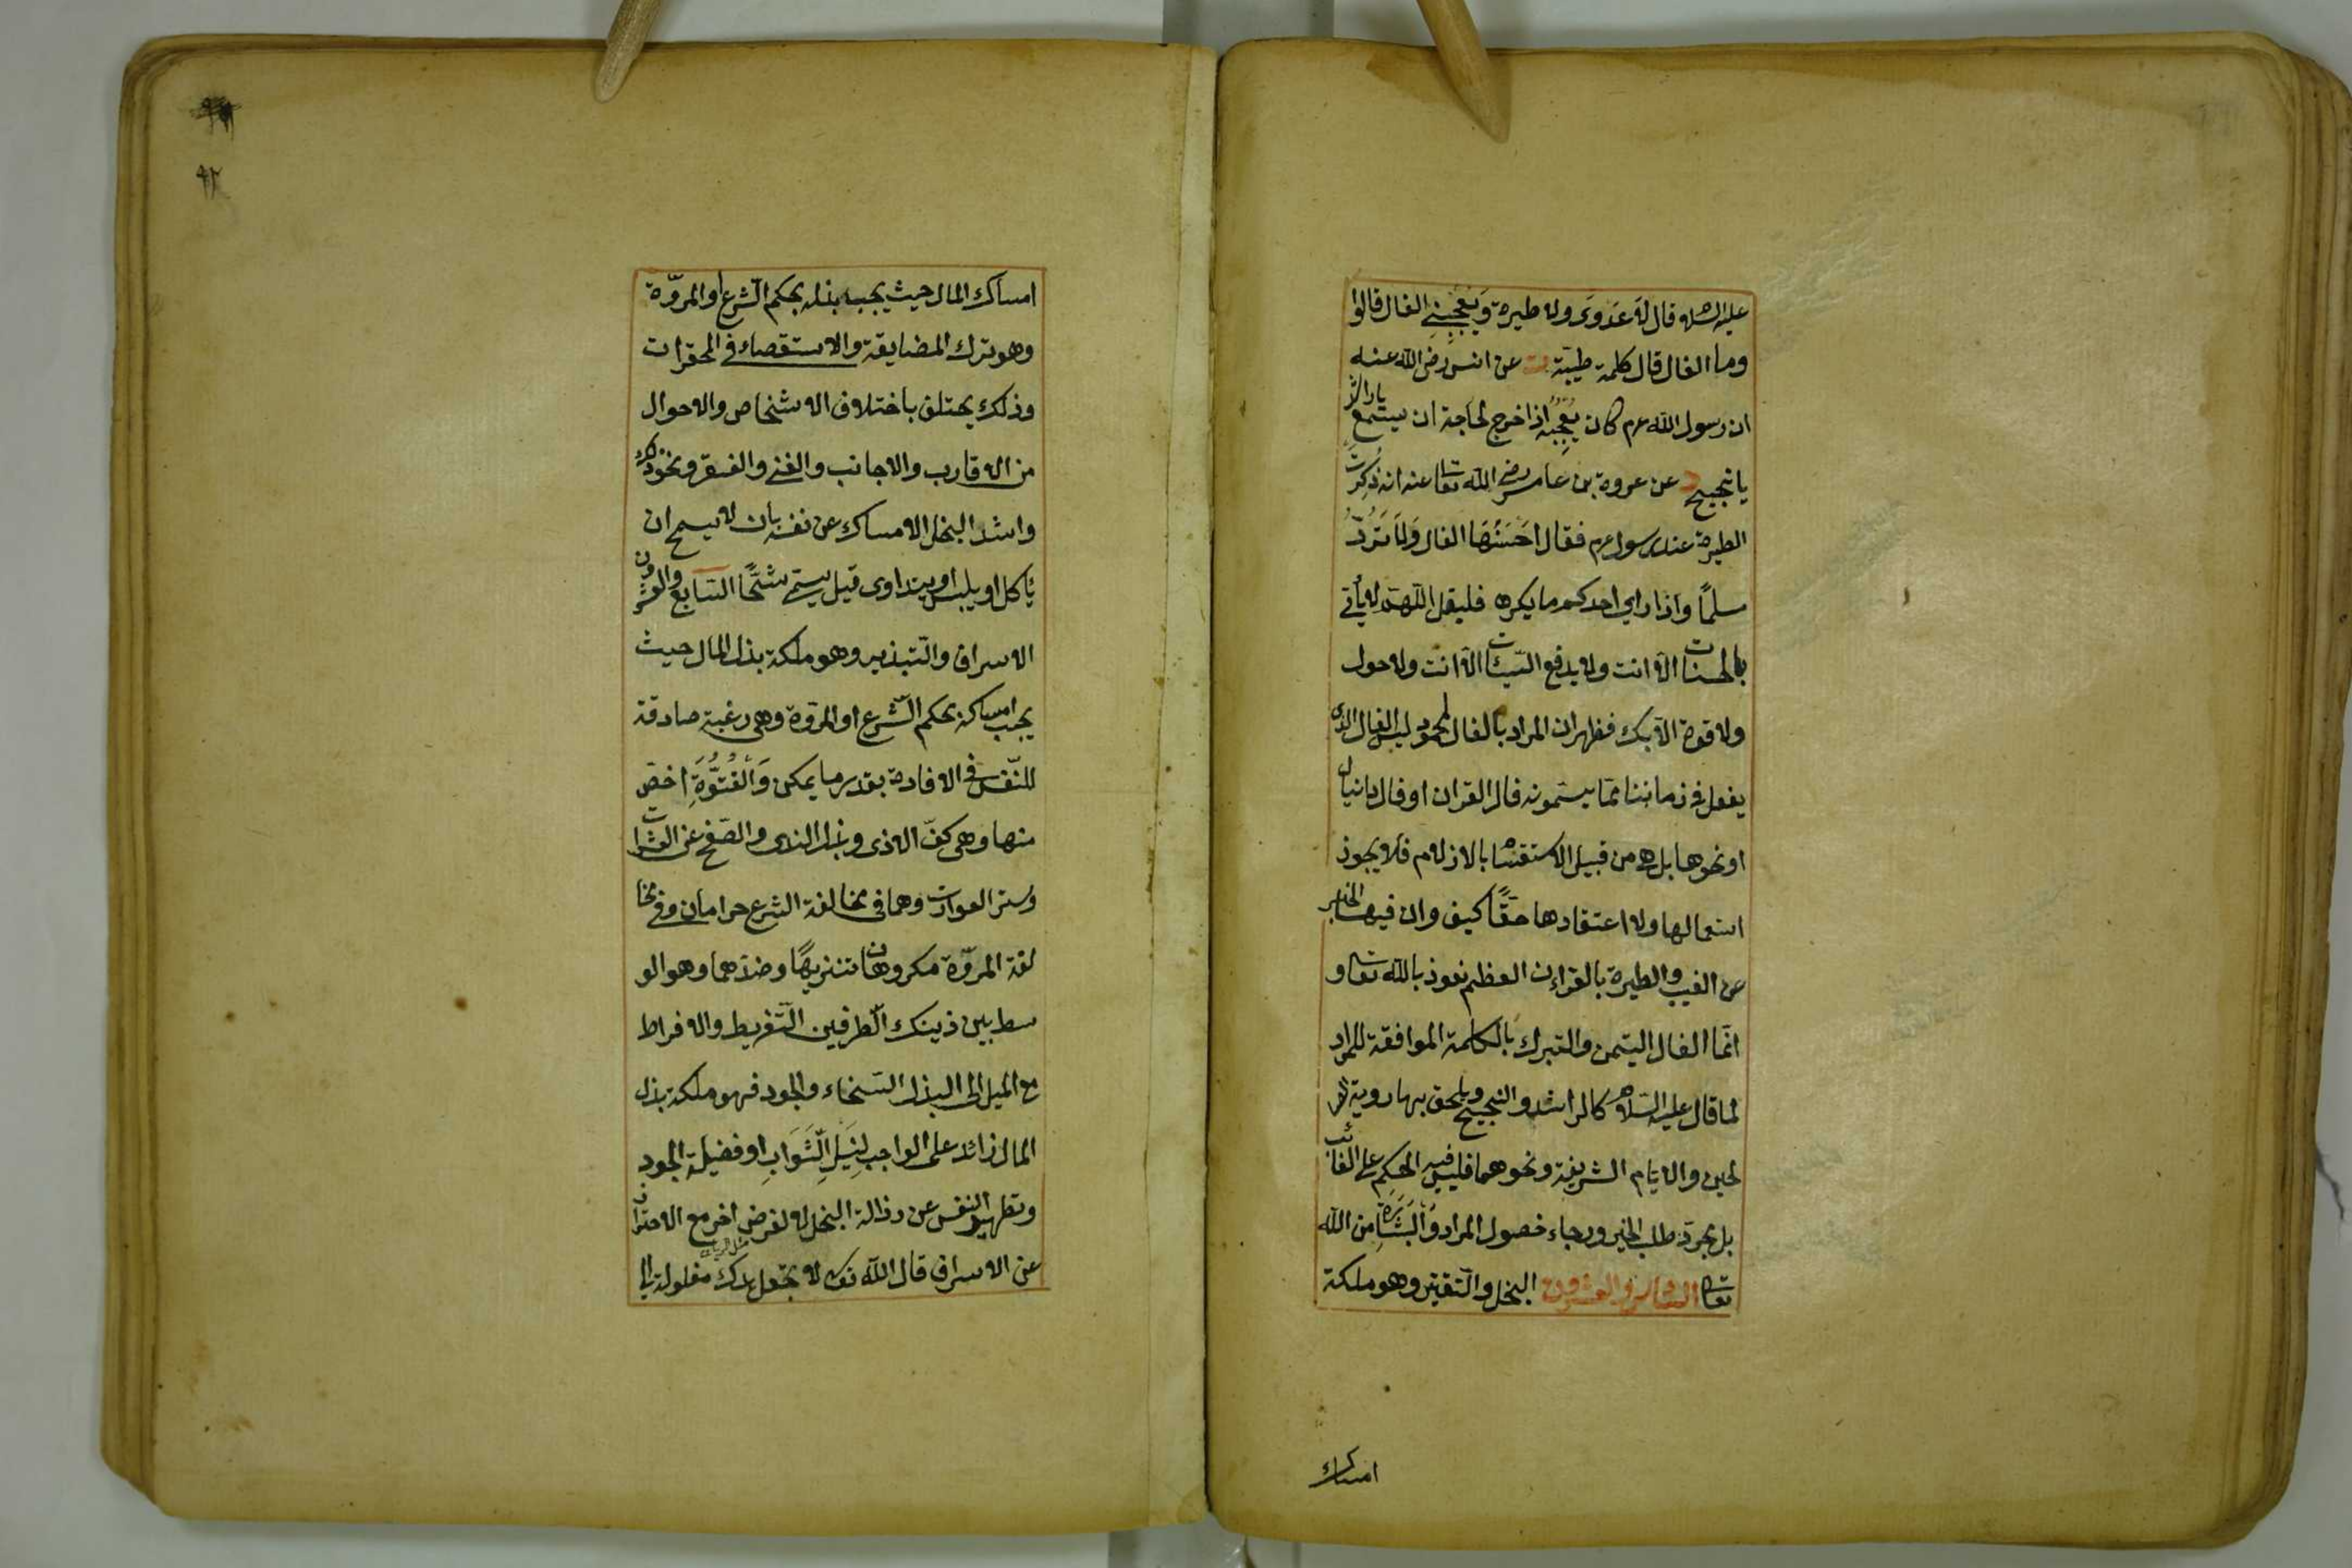 عليه السلام قال لا عدوى ولا طيرة وَيُعْجِبُنِي الفال قالوا
وما الفال قال كلمة طيبّة ت عن انس رضى الله عنه
ان رسول الله عم كان يُعْجِبُه اذا خرج لحاجة ان يستمع يا راشد
يا نجيح د عن عروة بن عامر رضى الله تعا عنه انه ذُكِرَت
الطيرة عند رسول عم فقال احَسَنُهَا الفال وَلَا تَرُدُّ
مسلمًا واذا راى احدكم ما يكره فليقل اللّهمّ لا يأتى
بالحسنات الّا انت ولا يدفع السّيئات الّا انت ولا حول
ولا قوة الّا بك فظهر ان المراد بالفال المحمود ليس الفال الذى
يفعل فى زماننا ممّا يسمّونه فال القران او فال دانيال
او نحوها بل هى من قبيل الاستقسام بالازلام فلا يجوز
استعمالها ولا اعتقادها حقًّا كيف وان فيها الخبر
عن الغيب والطيرة بالقران العظيم نعوذ بالله تعا و
انّما الفال التيمن والتبرك بالكلمة الموافقة للمراد
لما قال عليه السّلام كالراشد والنجيح ويلحق بها روية الصا
لحين والايام الشريفة ونحوهما فليس فيه الحكم على الغائب
بل مجرّد طلب الخير ورجاء حصول المراد وَالْبَشَارَة من الله
تعا السادس والعشرون البخل والتّقتير وهو ملكة
امساك
٩٢
امساك المال حيث يجب بذله بحكم الشّرع او المروّة
وهو ترك المضايقة والاستقصاء فى المحقرات
وذلك يختلف باختلاف الاشخاص والاحوال
من الاقارب والاجانب والغنى والفقر ونحو ذلك
واشد البخل الامساك عن نفسه بان لا يسمح ان
يأكل او يلبس او يتداوى قيل يسمّى شحًّا السّابع والعشرون
الاسراف والتّبذير وهو ملكة بذل المال حيث
يجب امساكه بحكم الشّرع او المروّة وهى رغبة صادقة
للنّفس فى الافادة بقدر ما يمكن وَالْفُتُوَّةِ اخصّ
منها وهى كفّ الاذى وبذل الندى والصّفح عن العثرات
وستر العورات وهما فى مخالفة الشرع حرامان وفى مخا
لفة المروّة مكروهان تنزيهًا وضدّهما وهو الو
سط بين ذينك الطّرفين التّفريط والافراط
مع الميل الى البذل السّخاء والجود فهو ملكة بذل
المال زائد على الواجب لِنَيْلِ الثَّوَابِ او فضيلة الجود
وتطهير النفس عن رذالة البخل لا لغرض اخر مع الاحتراز
عن الاسراف قال الله تعا لا تجعل يدك مغلولة الى